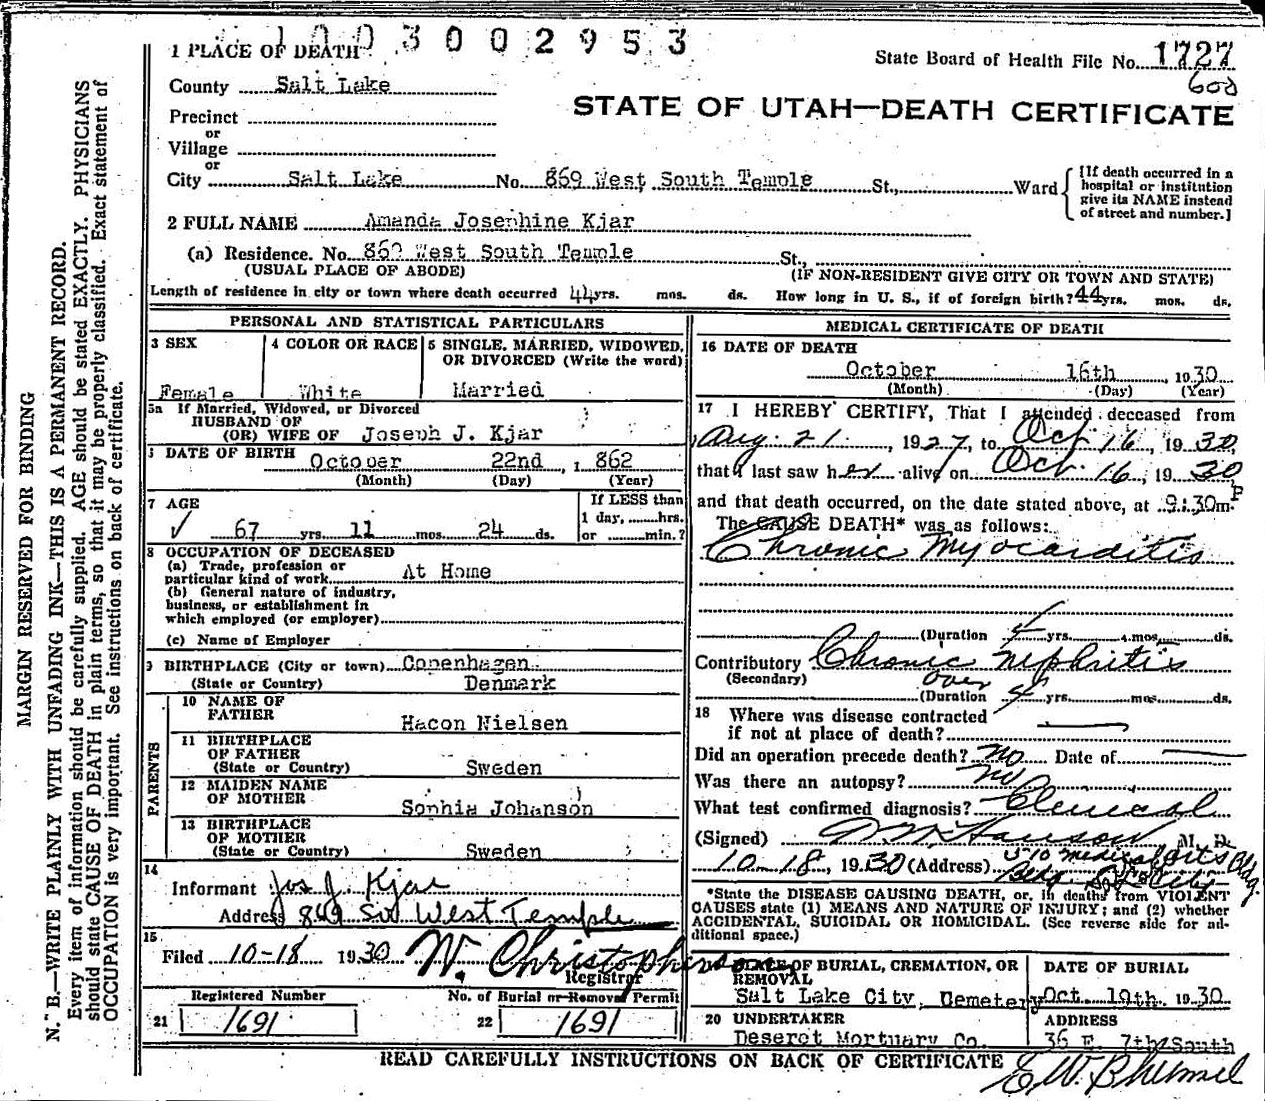 1003002953
1 PLACE OF DEATH
State Board of Health File No. 1727
600
County Salt Lake
STATE OF UTAH—DEATH CERTIFICATE
Precinct
or
Village
or
City Salt Lake No. 869 West South Temple St., Ward
[If death occurred in a hospital or institution give its NAME instead of street and number.]
2 FULL NAME Amanda Josephine Kjar
(a) Residence. No. 869 West South Temple St.,
(USUAL PLACE OF ABODE) (IF NON-RESIDENT GIVE CITY OR TOWN AND STATE)
Length of residence in city or town where death occurred 44 yrs. mos. ds. How long in U. S., if of foreign birth? 44 yrs. mos. ds.
PERSONAL AND STATISTICAL PARTICULARS
3 SEX
Female
4 COLOR OR RACE
White
5 SINGLE, MARRIED, WIDOWED, OR DIVORCED (Write the word)
Married
5a If Married, Widowed, or Divorced
HUSBAND OF
(OR) WIFE OF Joseph J. Kjar
6 DATE OF BIRTH October 22nd, 1862
(Month) (Day) (Year)
7 AGE
67 yrs. 11 mos. 24 ds.
If LESS than
1 day, hrs.
or min.?
8 OCCUPATION OF DECEASED
(a) Trade, profession or
particular kind of work At Home
(b) General nature of industry,
business, or establishment in
which employed (or employer)
(c) Name of Employer
9 BIRTHPLACE (City or town) Copenhagen
(State or Country) Denmark
PARENTS
10 NAME OF
FATHER Hacon Nielsen
11 BIRTHPLACE
OF FATHER
(State or Country) Sweden
12 MAIDEN NAME
OF MOTHER Sophia Johanson
13 BIRTHPLACE
OF MOTHER
(State or Country) Sweden
14
Informant Jos J. Kjar
Address 869 So West Temple
15
Filed 10-18 1930 W. Christopherson
Registrar
Registered Number
21 1691
No. of Burial or Removal Permit
22 1691
MEDICAL CERTIFICATE OF DEATH
16 DATE OF DEATH
October 16th, 1930
(Month) (Day) (Year)
17 I HEREBY CERTIFY, That I attended deceased from
Aug. 21, 1927, to Oct 16, 1930,
that I last saw her alive on Oct. 16, 1930
and that death occurred, on the date stated above, at 9:30 P m.
The CAUSE DEATH* was as follows:
Chronic Myocarditis
(Duration 4 yrs. mos. ds.
Contributory Chronic Nephritis
(Secondary) over
(Duration 4 yrs. mos. ds.
18 Where was disease contracted
if not at place of death?
Did an operation precede death? No Date of
Was there an autopsy? No
What test confirmed diagnosis? Clinical
(Signed) Hanson M. D.
10-18, 1930 (Address) 510 Medical Arts Bldg.
Bldg City
*State the DISEASE CAUSING DEATH, or, in deaths from VIOLENT
CAUSES state (1) MEANS AND NATURE OF INJURY; and (2) whether
ACCIDENTAL, SUICIDAL OR HOMICIDAL. (See reverse side for ad-
ditional space.)
PLACE OF BURIAL, CREMATION, OR
REMOVAL
Salt Lake City, Cemetery
DATE OF BURIAL
Oct. 19th, 1930
20 UNDERTAKER
Deseret Mortuary Co.
ADDRESS
36 E. 7th South
READ CAREFULLY INSTRUCTIONS ON BACK OF CERTIFICATE
MARGIN RESERVED FOR BINDING
N. B.—WRITE PLAINLY WITH UNFADING INK—THIS IS A PERMANENT RECORD.
Every item of information should be carefully supplied. AGE should be stated EXACTLY. PHYSICIANS
should state CAUSE OF DEATH in plain terms, so that it may be properly classified. Exact statement of
OCCUPATION is very important. See instructions on back of certificate.